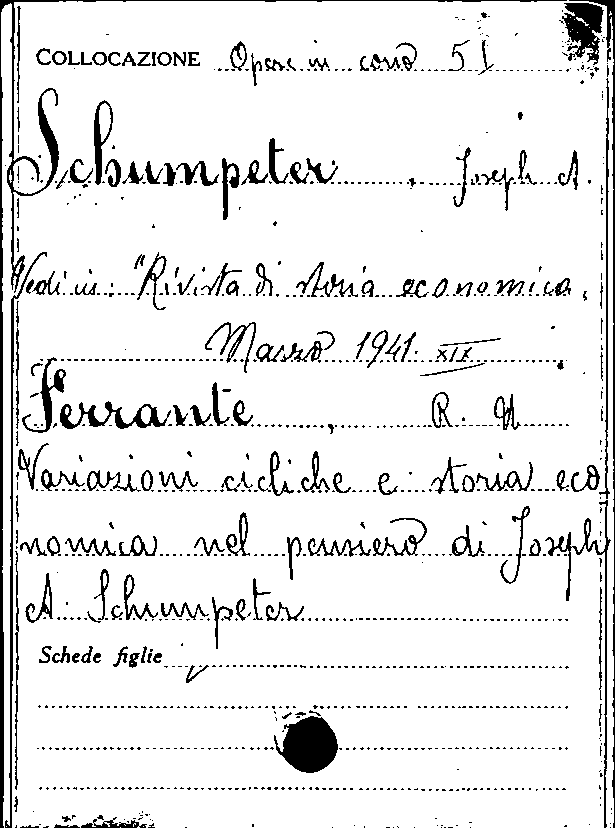 COLLOCAZIONE Opere in corso 51
Schumpeter, Joseph A.
Vedi in: "Rivista di storia economica,
Marzo 1941. XIX
Ferrante, R. U
Variazioni cicliche e storia eco
nomica nel pensiero di Joseph
A. Schumpeter
Schede figlie